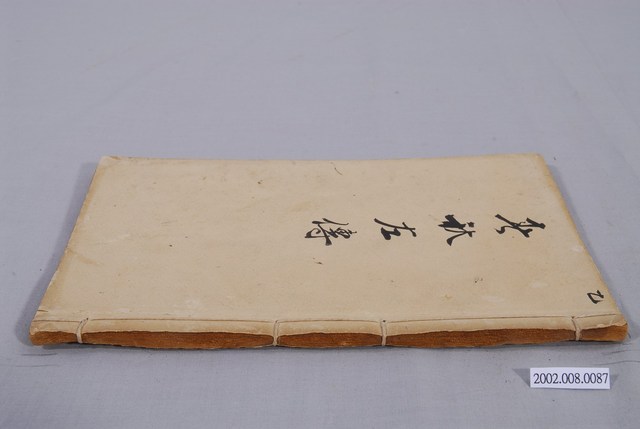 春秋左傳
乙
2002.008.0087